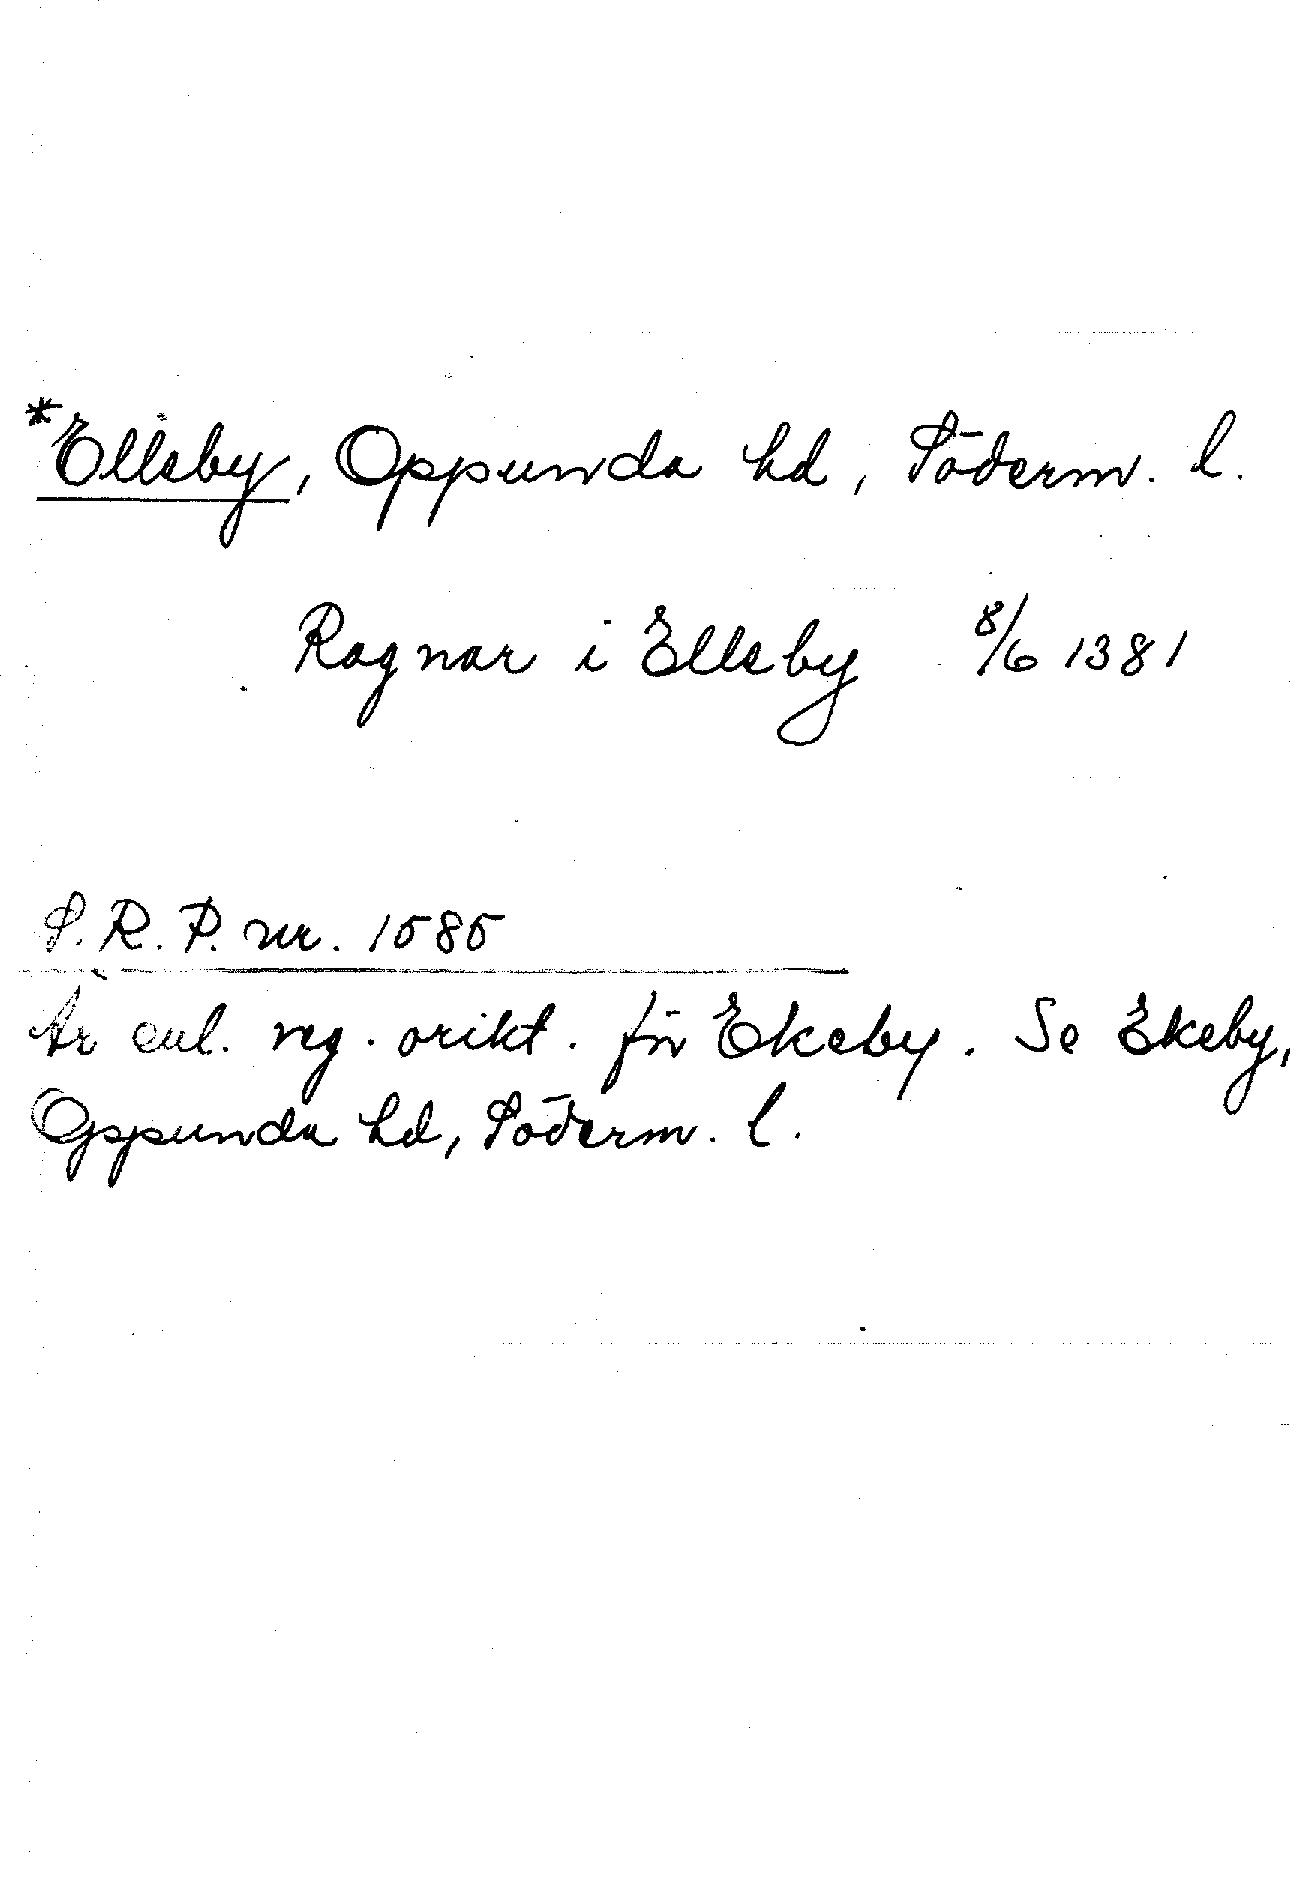 *Elleby, Oppunda hd, Söderm. l.
Ragnar i Elleby 8/6 1381
S.R.P. nr. 1585
Är enl. reg. orikt. för Ekeby. Se Ekeby,
Oppunda hd, Söderm. l.